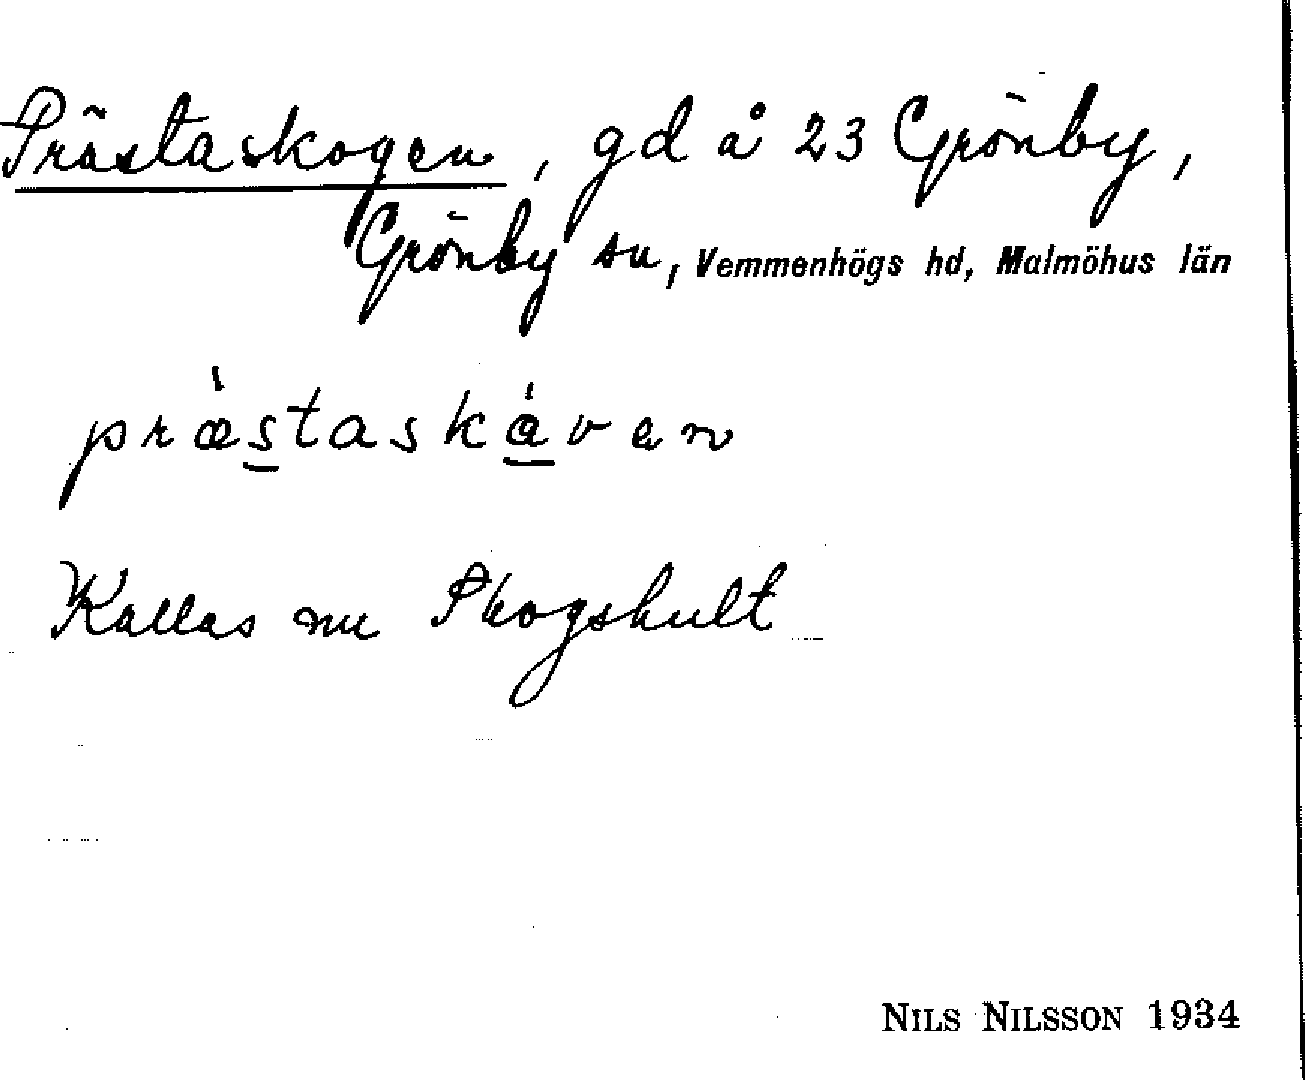 Prästaskogen, gd å 23 Grönby,
Grönby sn, Vemmenhögs hd, Malmöhus län
præ̀staskåven
Kallas nu Skogshult
NILS NILSSON 1934